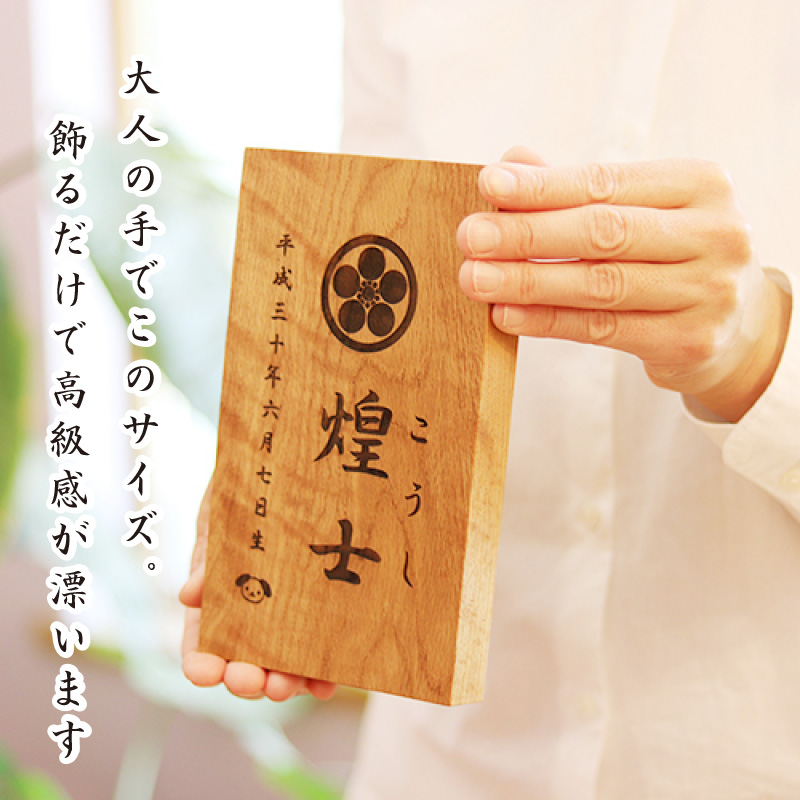 大人の手でこのサイズ。
飾るだけで高級感が漂います
こうし
煌士
平成三十年六月七日生